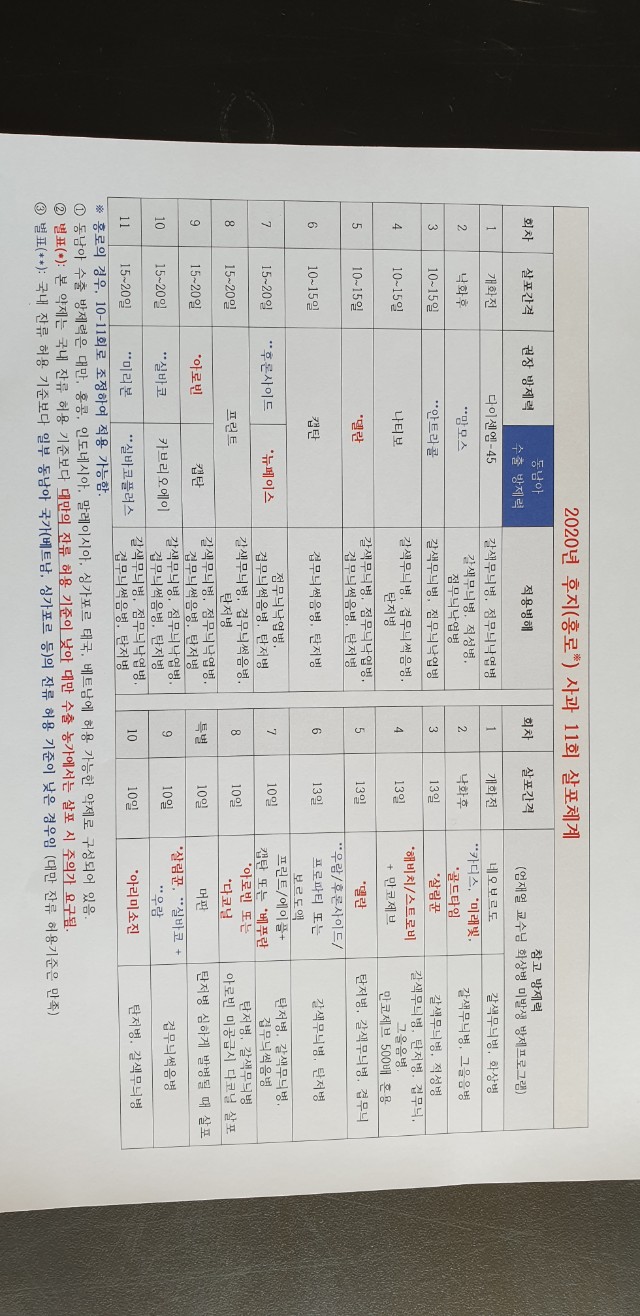 2020년 후지(홍로※) 사과 11회 살포체계
회차 살포간격 권장 방제력 동남아 수출 방제력 적용병해
1 개화전 다이센엠-45 갈색무늬병, 점무늬낙엽병
2 낙화후 **맘모스 갈색무늬병, 적성병, 점무늬낙엽병
3 10~15일 **안트리콜 갈색무늬병, 점무늬낙엽병
4 10~15일 나티보 갈색무늬병, 겹무늬썩음병, 탄저병
5 10~15일 *델란 갈색무늬병, 점무늬낙엽병, 겹무늬썩음병, 탄저병
6 10~15일 캡탄 겹무늬썩음병, 탄저병
7 15~20일 **후론사이드 *뉴페이스 점무늬낙엽병, 겹무늬썩음병, 탄저병
8 15~20일 프린트 갈색무늬병, 겹무늬썩음병, 탄저병
9 15~20일 *아로빈 캡탄 갈색무늬병, 점무늬낙엽병, 겹무늬썩음병, 탄저병
10 15~20일 **실바코 카브리오에이 갈색무늬병, 점무늬낙엽병, 겹무늬썩음병, 탄저병
11 15~20일 **미리본 **실바코플러스 갈색무늬병, 점무늬낙엽병, 겹무늬썩음병, 탄저병
회차 살포간격 참고 방제력
(엄재열 교수님 화상병 미발생 방제프로그램)
1 개화전 네오보르도 갈색무늬병, 화상병
2 낙화후 **카디스, *미래빛, *골드타임 갈색무늬병, 그을음병
3 13일 *살림꾼 갈색무늬병, 적성병
4 13일 *해비치/스트로비 + 만코제브 갈색무늬병, 탄저병, 겹무늬, 그을음병, 만코제브 500배 혼용
5 13일 *델란 탄저병, 갈색무늬병, 겹무늬
6 13일 **우람/후론사이드/프로파티 또는 보르도액 갈색무늬병, 탄저병
7 10일 프린트/에이플+캡탄 또는 *베푸란 탄저병, 갈색무늬병, 겹무늬썩음병
8 10일 *아로빈 또는 *다코닐 탄저병, 갈색무늬병 아로빈 미공급시 다코닐 살포
특별 10일 머판 탄저병 심하게 발병될 때 살포
9 10일 *살림꾼, **실바코 + **우람 겹무늬썩음병
10 10일 *아리미소진 탄저병, 갈색무늬병
※ 홍로의 경우, 10-11회로 조정하여 적용 가능함.
① 동남아 수출 방제력은 대만, 홍콩, 인도네시아, 말레이시아, 싱가포르 태국, 베트남에 허용 가능한 약제로 구성되어 있음.
② 별표(*): 본 약제는 국내 잔류 허용 기준보다 대만의 잔류 허용 기준이 낮아 대만 수출 농가에서는 살포 시 주의가 요구됨.
③ 별표(**): 국내 잔류 허용 기준보다 일부 동남아 국가(베트남, 싱가포르 등)의 잔류 허용 기준이 낮은 경우임 (대만 잔류 허용기준은 만족)